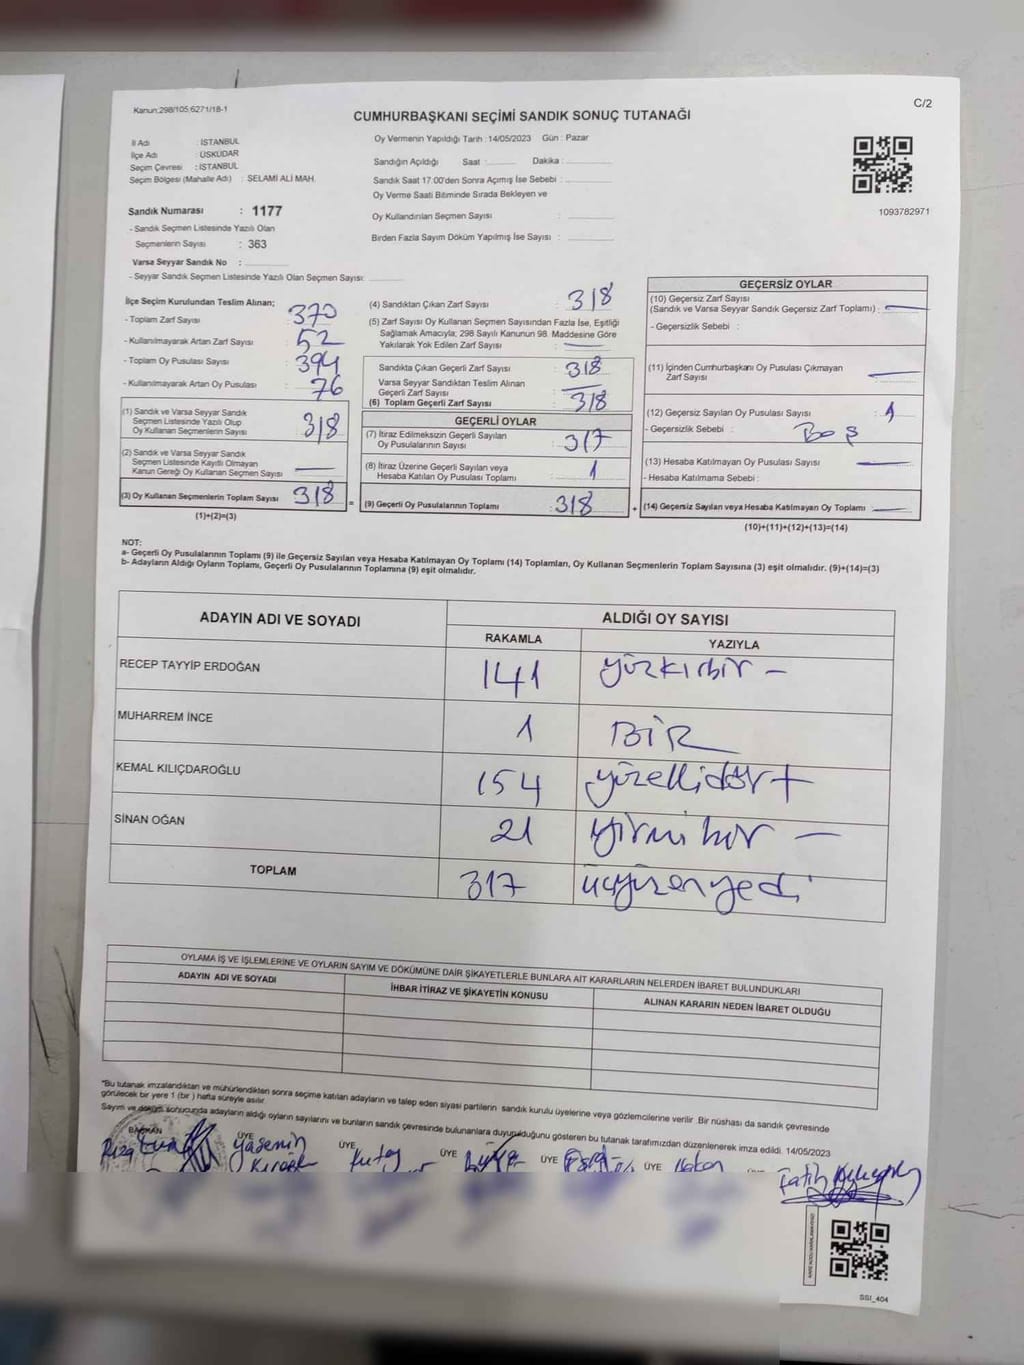 Kanun:298/105,6271/18-1
C/2
CUMHURBAŞKANI SEÇİMİ SANDIK SONUÇ TUTANAĞI
İl Adı : İSTANBUL
İlçe Adı : ÜSKÜDAR
Seçim Çevresi : İSTANBUL
Seçim Bölgesi (Mahalle Adı) : SELAMİ ALİ MAH.
Sandık Numarası : 1177
- Sandık Seçmen Listesinde Yazılı Olan
Seçmenlerin Sayısı : 363
Varsa Seyyar Sandık No :
- Seyyar Sandık Seçmen Listesinde Yazılı Olan Seçmen Sayısı:
Oy Vermenin Yapıldığı Tarih :14/05/2023 Gün : Pazar
Sandığın Açıldığı Saat : Dakika :
Sandık Saat 17:00'den Sonra Açımış İse Sebebi :
Oy Verme Saati Bitiminde Sırada Bekleyen ve
Oy Kullandırılan Seçmen Sayısı :
Birden Fazla Sayım Döküm Yapılmış İse Sayısı :
1093782971
İlçe Seçim Kurulundan Teslim Alınan;
- Toplam Zarf Sayısı : 370
- Kullanılmayarak Artan Zarf Sayısı : 52
- Toplam Oy Pusulası Sayısı : 394
- Kullanılmayarak Artan Oy Pusulası : 76
(1) Sandık ve Varsa Seyyar Sandık
Seçmen Listesinde Yazılı Olup
Oy Kullanan Seçmenlerin Sayısı : 318
(2) Sandık ve Varsa Seyyar Sandık
Seçmen Listesinde Kayıtlı Olmayan
Kanun Gereği Oy Kullanan Seçmen Sayısı : —
(3) Oy Kullanan Seçmenlerin Toplam Sayısı : 318 =
(1)+(2)=(3)
(4) Sandıktan Çıkan Zarf Sayısı : 318
(5) Zarf Sayısı Oy Kullanan Seçmen Sayısından Fazla İse, Eşitliği
Sağlamak Amacıyla; 298 Sayılı Kanunun 98. Maddesine Göre
Yakılarak Yok Edilen Zarf Sayısı : —
Sandıkta Çıkan Geçerli Zarf Sayısı : 318
Varsa Seyyar Sandıktan Teslim Alınan
Geçerli Zarf Sayısı : —
(6) Toplam Geçerli Zarf Sayısı : 318
GEÇERLİ OYLAR
(7) İtiraz Edilmeksizin Geçerli Sayılan
Oy Pusulalarının Sayısı : 317
(8) İtiraz Üzerine Geçerli Sayılan veya
Hesaba Katılan Oy Pusulası Toplamı : 1
(9) Geçerli Oy Pusulalarının Toplamı : 318 +
GEÇERSİZ OYLAR
(10) Geçersiz Zarf Sayısı
(Sandık ve Varsa Seyyar Sandık Geçersiz Zarf Toplamı) : —
- Geçersizlik Sebebi :
(11) İçinden Cumhurbaşkanı Oy Pusulası Çıkmayan
Zarf Sayısı : —
(12) Geçersiz Sayılan Oy Pusulası Sayısı : 1
- Geçersizlik Sebebi : Boş
(13) Hesaba Katılmayan Oy Pusulası Sayısı : —
- Hesaba Katılmama Sebebi :
(14) Geçersiz Sayılan veya Hesaba Katılmayan Oy Toplamı : —
(10)+(11)+(12)+(13)=(14)
NOT:
a- Geçerli Oy Pusulalarının Toplamı (9) ile Geçersiz Sayılan veya Hesaba Katılmayan Oy Toplamı (14) Toplamları, Oy Kullanan Seçmenlerin Toplam Sayısına (3) eşit olmalıdır. (9)+(14)=(3)
b- Adayların Aldığı Oyların Toplamı, Geçerli Oy Pusulalarının Toplamına (9) eşit olmalıdır.
ADAYIN ADI VE SOYADI ALDIĞI OY SAYISI
RAKAMLA YAZIYLA
RECEP TAYYİP ERDOĞAN 141 yüzkırbir —
MUHARREM İNCE 1 BİR
KEMAL KILIÇDAROĞLU 154 yüzellidört
SİNAN OĞAN 21 yirmibir —
TOPLAM 317 üçyüzonyedi
OYLAMA İŞ VE İŞLEMLERİNE VE OYLARIN SAYIM VE DÖKÜMÜNE DAİR ŞİKAYETLERLE BUNLARA AİT KARARLARIN NELERDEN İBARET BULUNDUKLARI
ADAYIN ADI VE SOYADI İHBAR İTİRAZ VE ŞİKAYETİN KONUSU ALINAN KARARIN NEDEN İBARET OLDUĞU
"Bu tutanak imzalandıktan ve mühürlendikten sonra seçime katılan adayların ve talep eden siyasi partilerin sandık kurulu üyelerine veya gözlemcilerine verilir. Bir nüshası da sandık çevresinde
görülecek bir yere 1 (bir ) hafta süreyle asılır.
Sayım ve döküm sonucunda adayların aldığı oyların sayılarını ve bunların sandık çevresinde bulunanlara duyurulduğunu gösteren bu tutanak tarafımızdan düzenlenerek imza edildi. 14/05/2023
BAŞKAN ÜYE ÜYE ÜYE ÜYE ÜYE
Rıza Yasemin Kutay Hakan Fatih
SSI_404